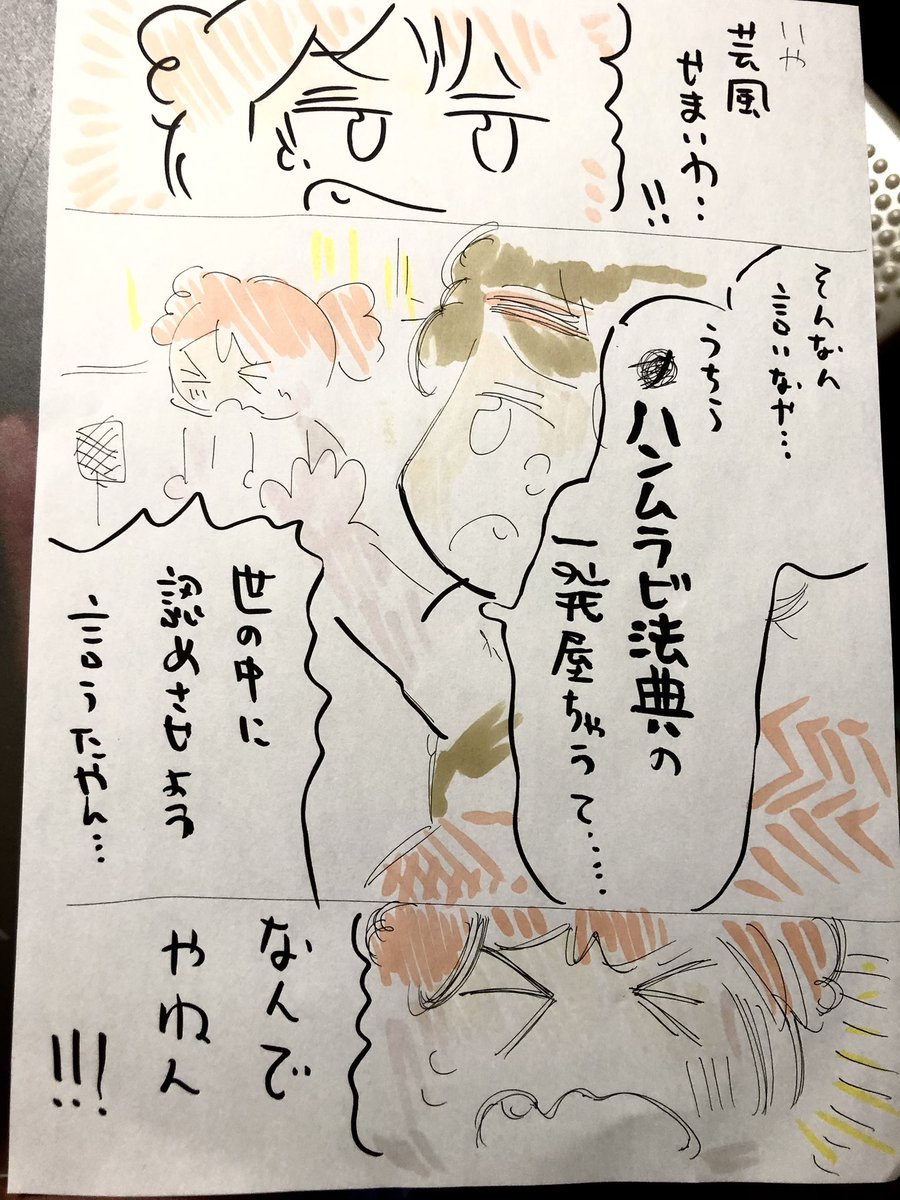 いや
芸風
やまいわ‥!!
そんなん
言いなや…
うちら
ハンムラビ法典の
一発屋ちゃうて……
世の中に
認めさせよう
言うたやん…
なんで
やねん
!!!